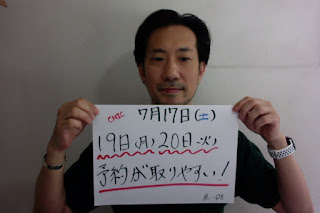 CHIC 7月17日(土)
19日(月)20日(火)
予約が取りやすい!